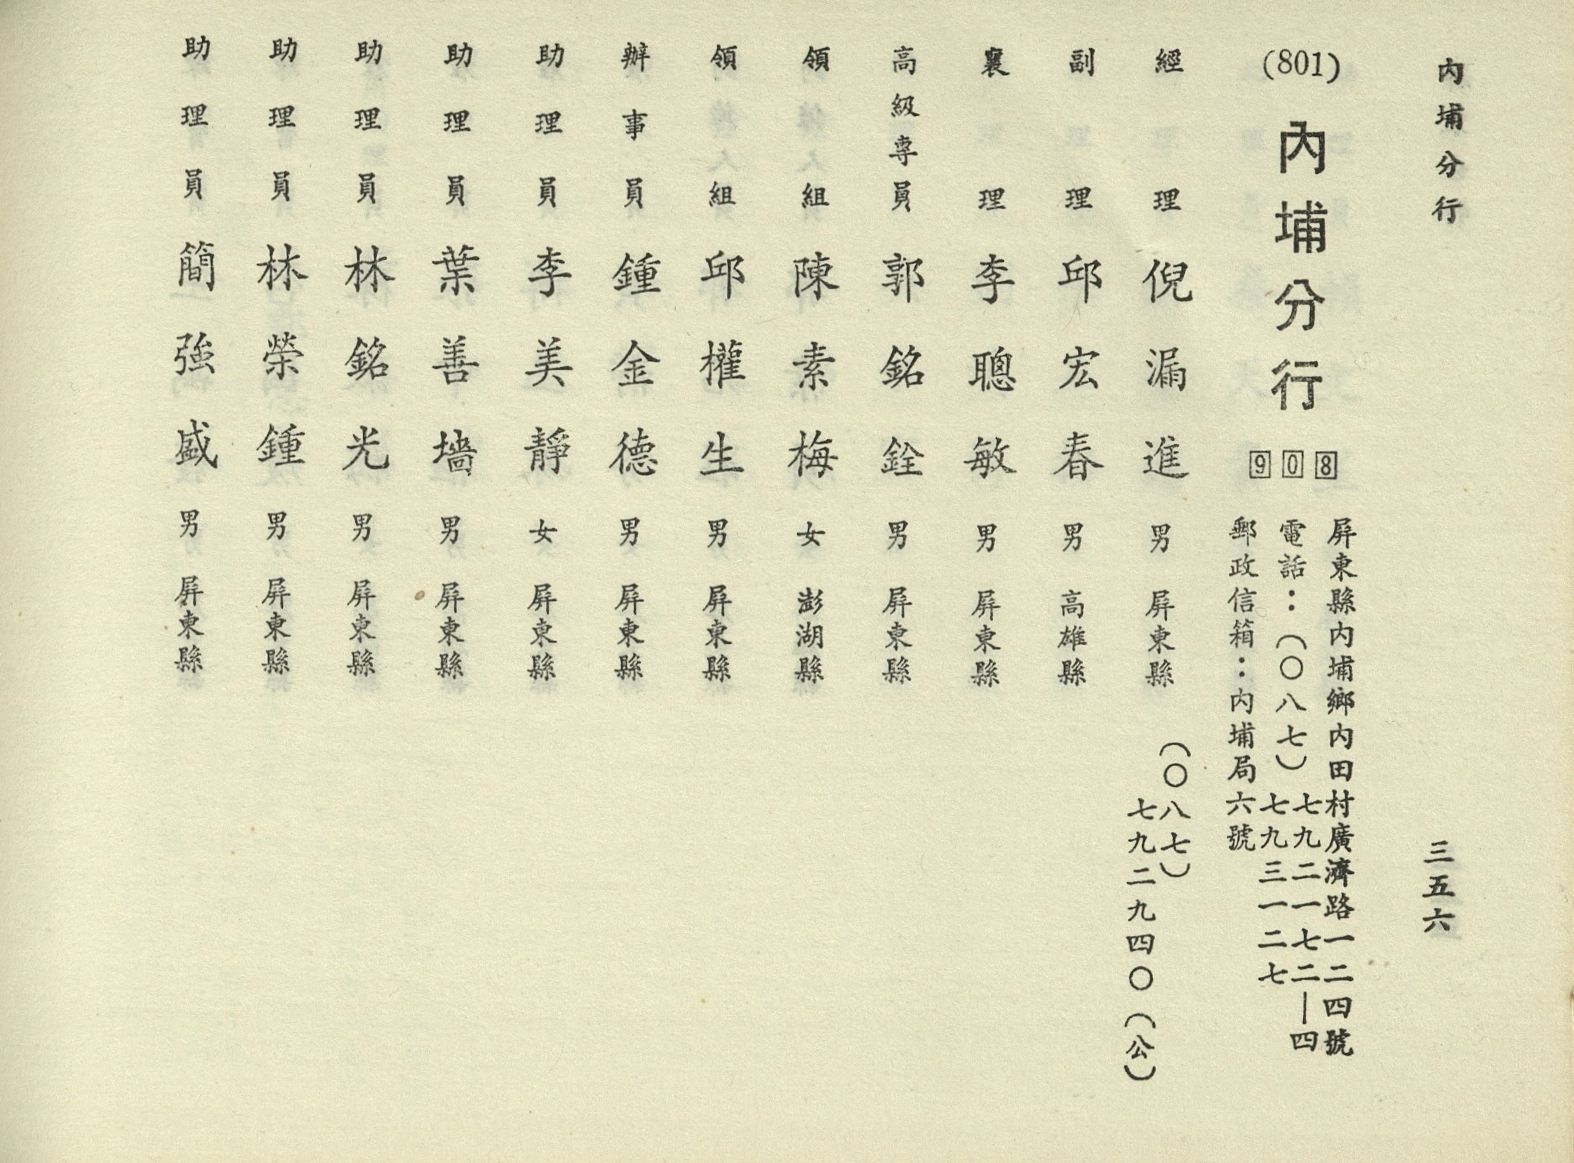 內埔分行
三五六
(801)
內埔分行
908
屏東縣內埔鄉內田村廣濟路一二四號
電話：(〇八七)七九二一七二—四
七九三一二七
郵政信箱：內埔局六號
經理 倪漏進 男 屏東縣 (〇八七)
七九二九四〇(公)
副理 邱宏春 男 高雄縣
襄理 李聰敏 男 屏東縣
高級專員 郭銘銓 男 屏東縣
領組 陳素梅 女 澎湖縣
領組 邱權生 男 屏東縣
辦事員 鍾金德 男 屏東縣
助理員 李美靜 女 屏東縣
助理員 葉善墻 男 屏東縣
助理員 林銘光 男 屏東縣
助理員 林榮鍾 男 屏東縣
助理員 簡強盛 男 屏東縣